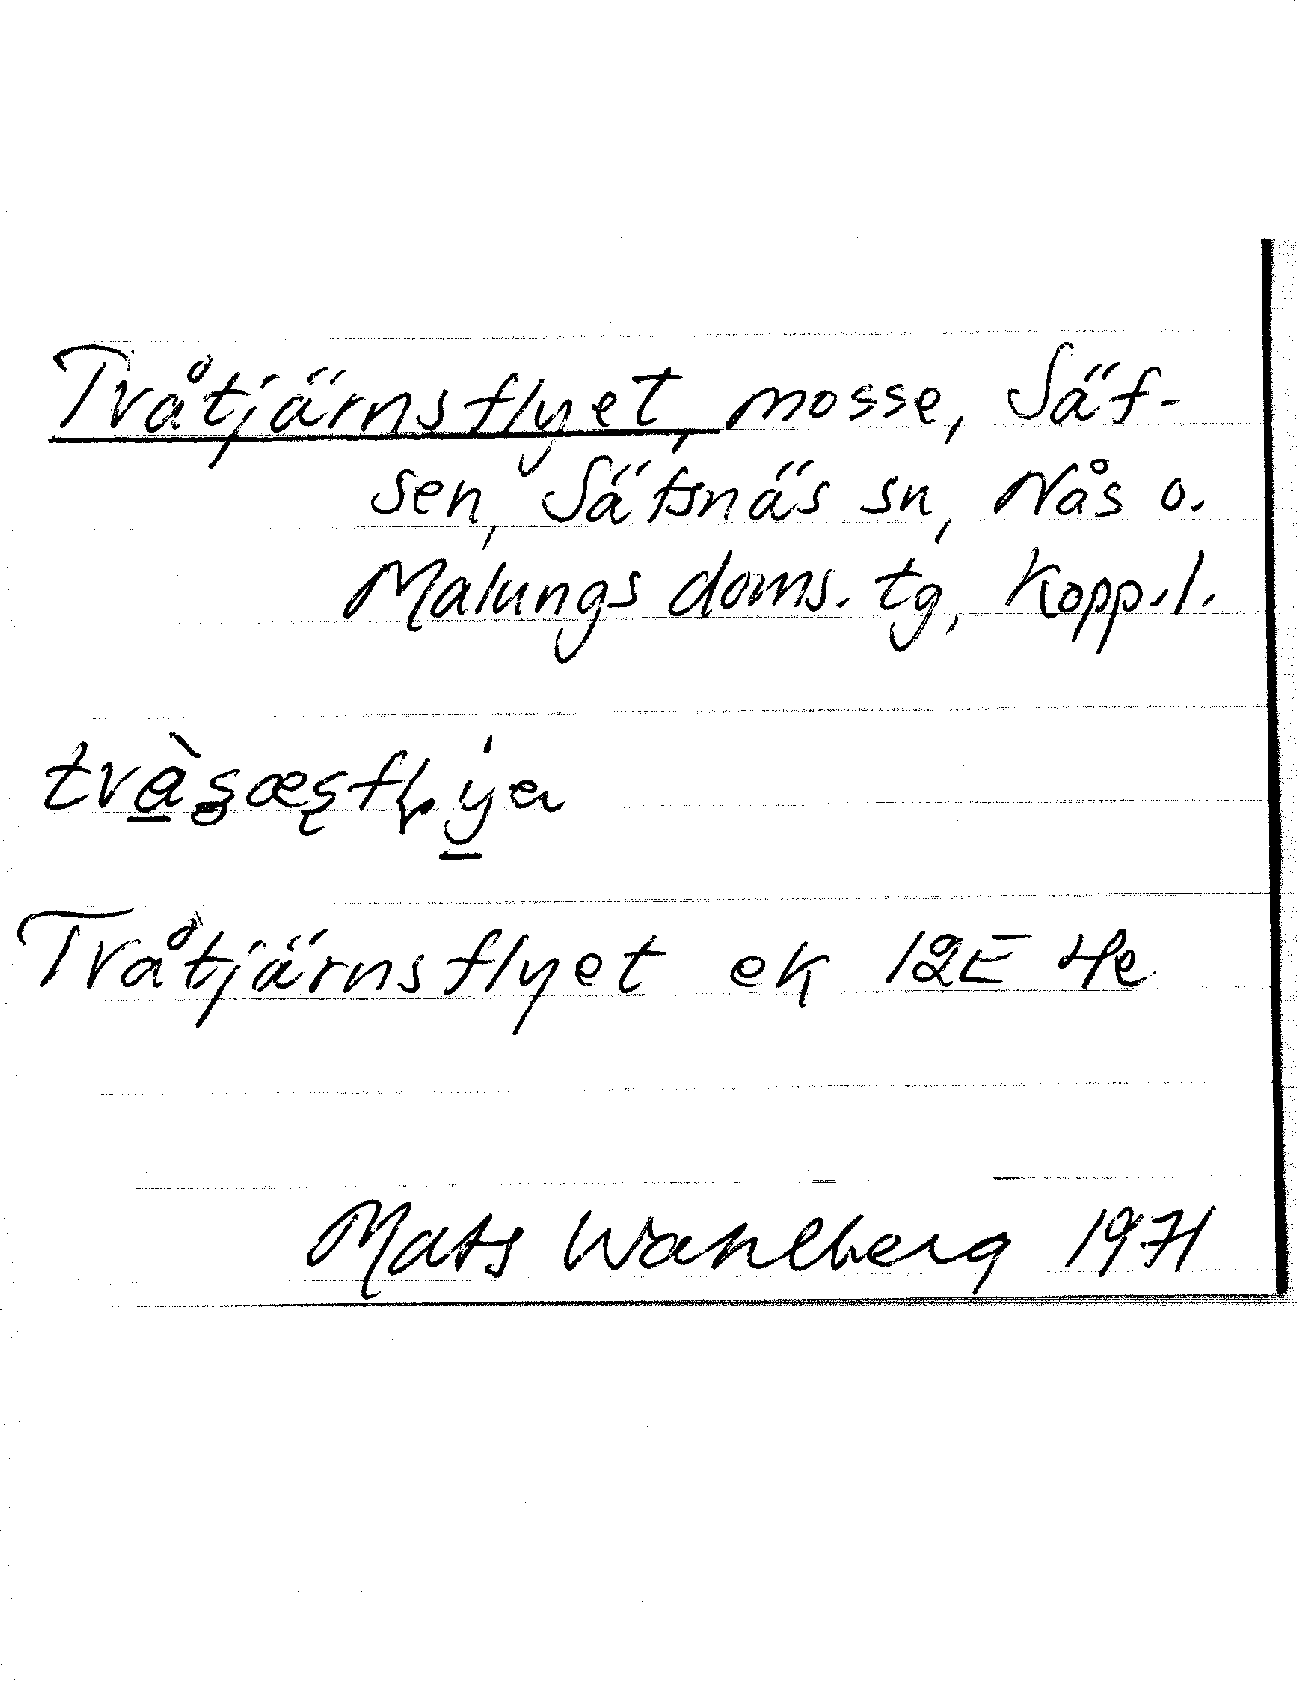 Tvåtjärnsflyet, mosse, Säf-
sen, Säfsnäs sn, Nås o.
Malungs doms. tg, Kopp.l.
Tvåtjärnsflyet ek 12E 4e
Mats Wahlberg 1971